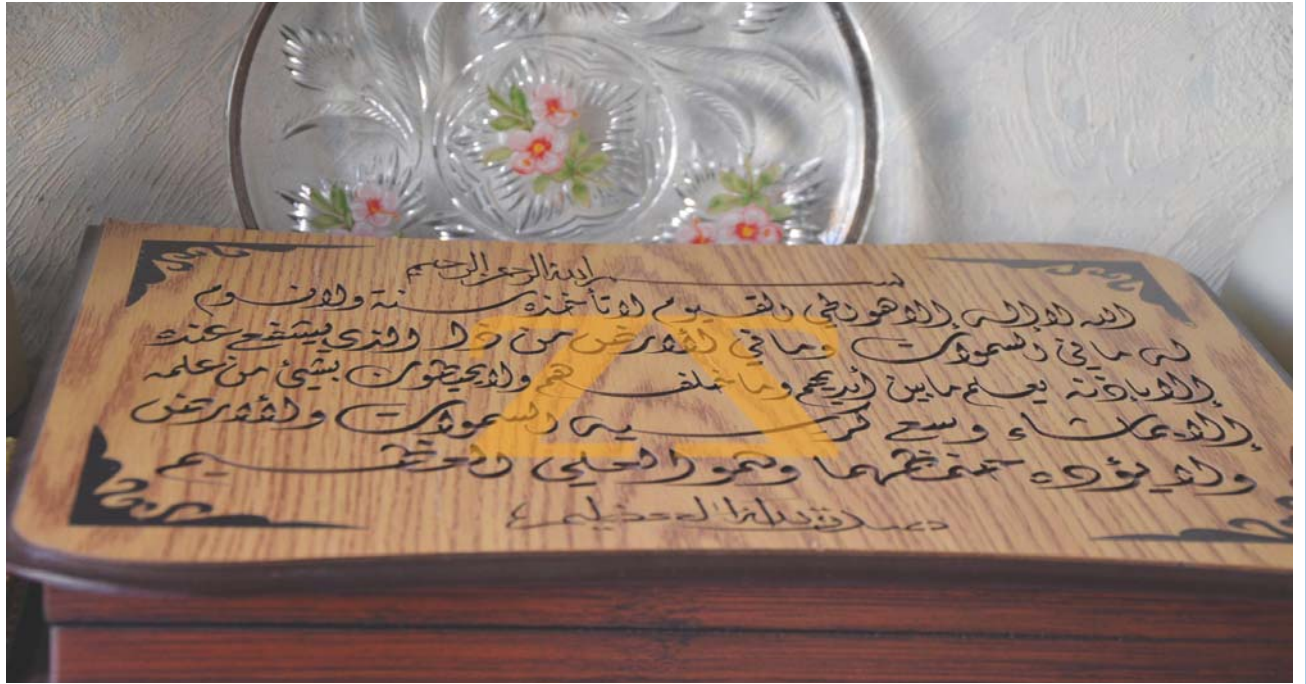 بسم الله الرحمن الرحيم
الله لا إله إلا هو الحي القيوم لا تأخذه سنة ولا نوم
له ما في السموات وما في الأرض من ذا الذي يشفع عنده
إلا بإذنه يعلم ما بين أيديهم وما خلفهم ولا يحيطون بشيئ من علمه
إلا بما شاء وسع كرسيه السموات والأرض
ولا يؤده حفظهما وهو العلي العظيم
صدق الله العظيم